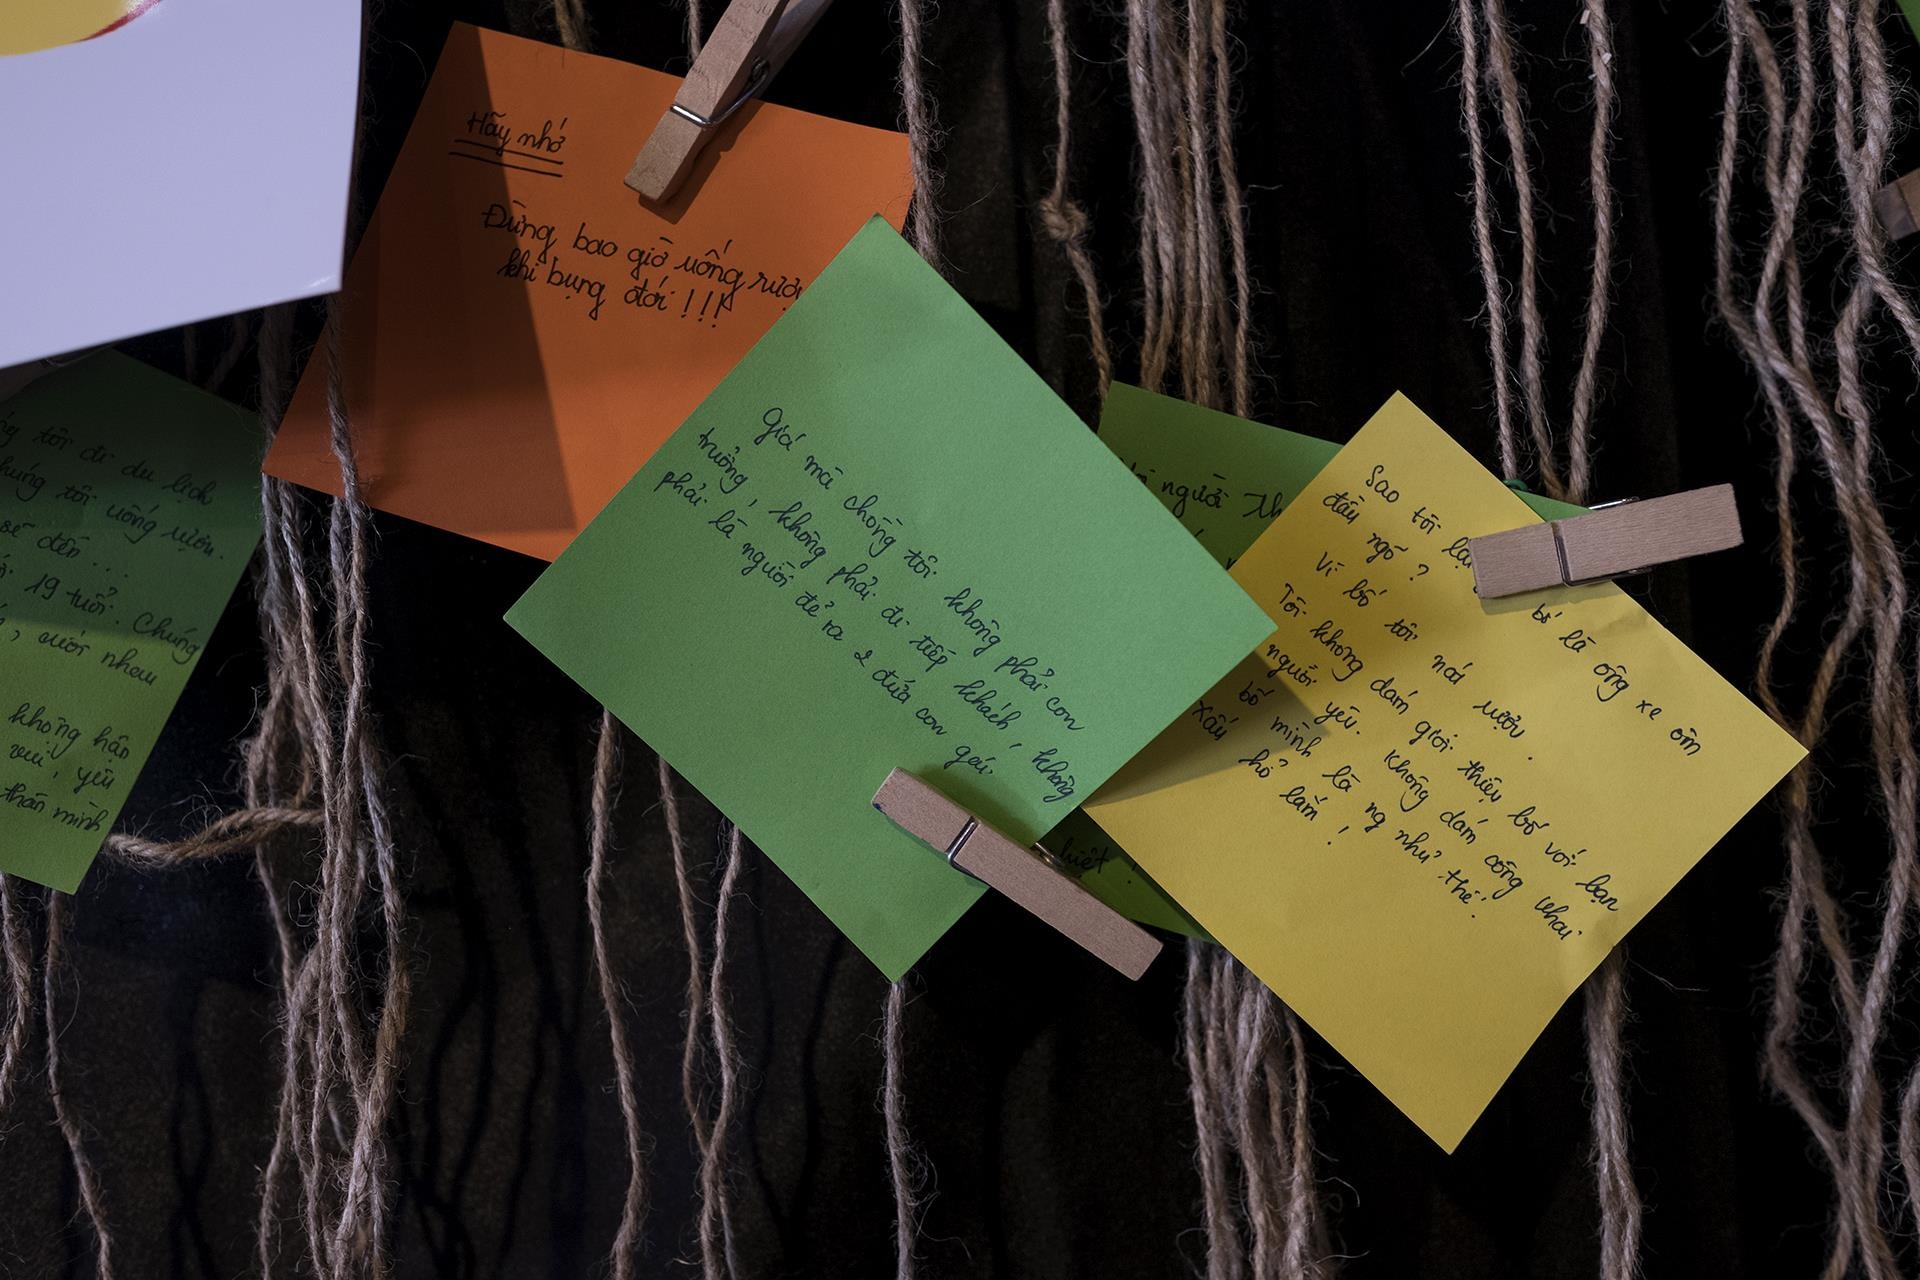 Hãy nhớ
Đừng bao giờ uống rượu
khi bụng đói !!!
Giá mà chồng tôi không phải con
trưởng, không phải đi tiếp khách, không
phải là người đẻ ra 2 đứa con gái
Sao tôi lại bố là ông xe ôm
đầu ngõ ?
Vì bố tôi nát rượu.
Tôi không dám giới thiệu bố với bạn
người yêu. Không dám công khai
bố mình là ng như thế.
Xấu hổ lắm !
người Th
biệt !
tôi đi du lịch
chúng tôi uống rượu.
sẽ đến...
19 tuổi. Chúng
, cười nhau
không hận
vui, yêu
thân mình